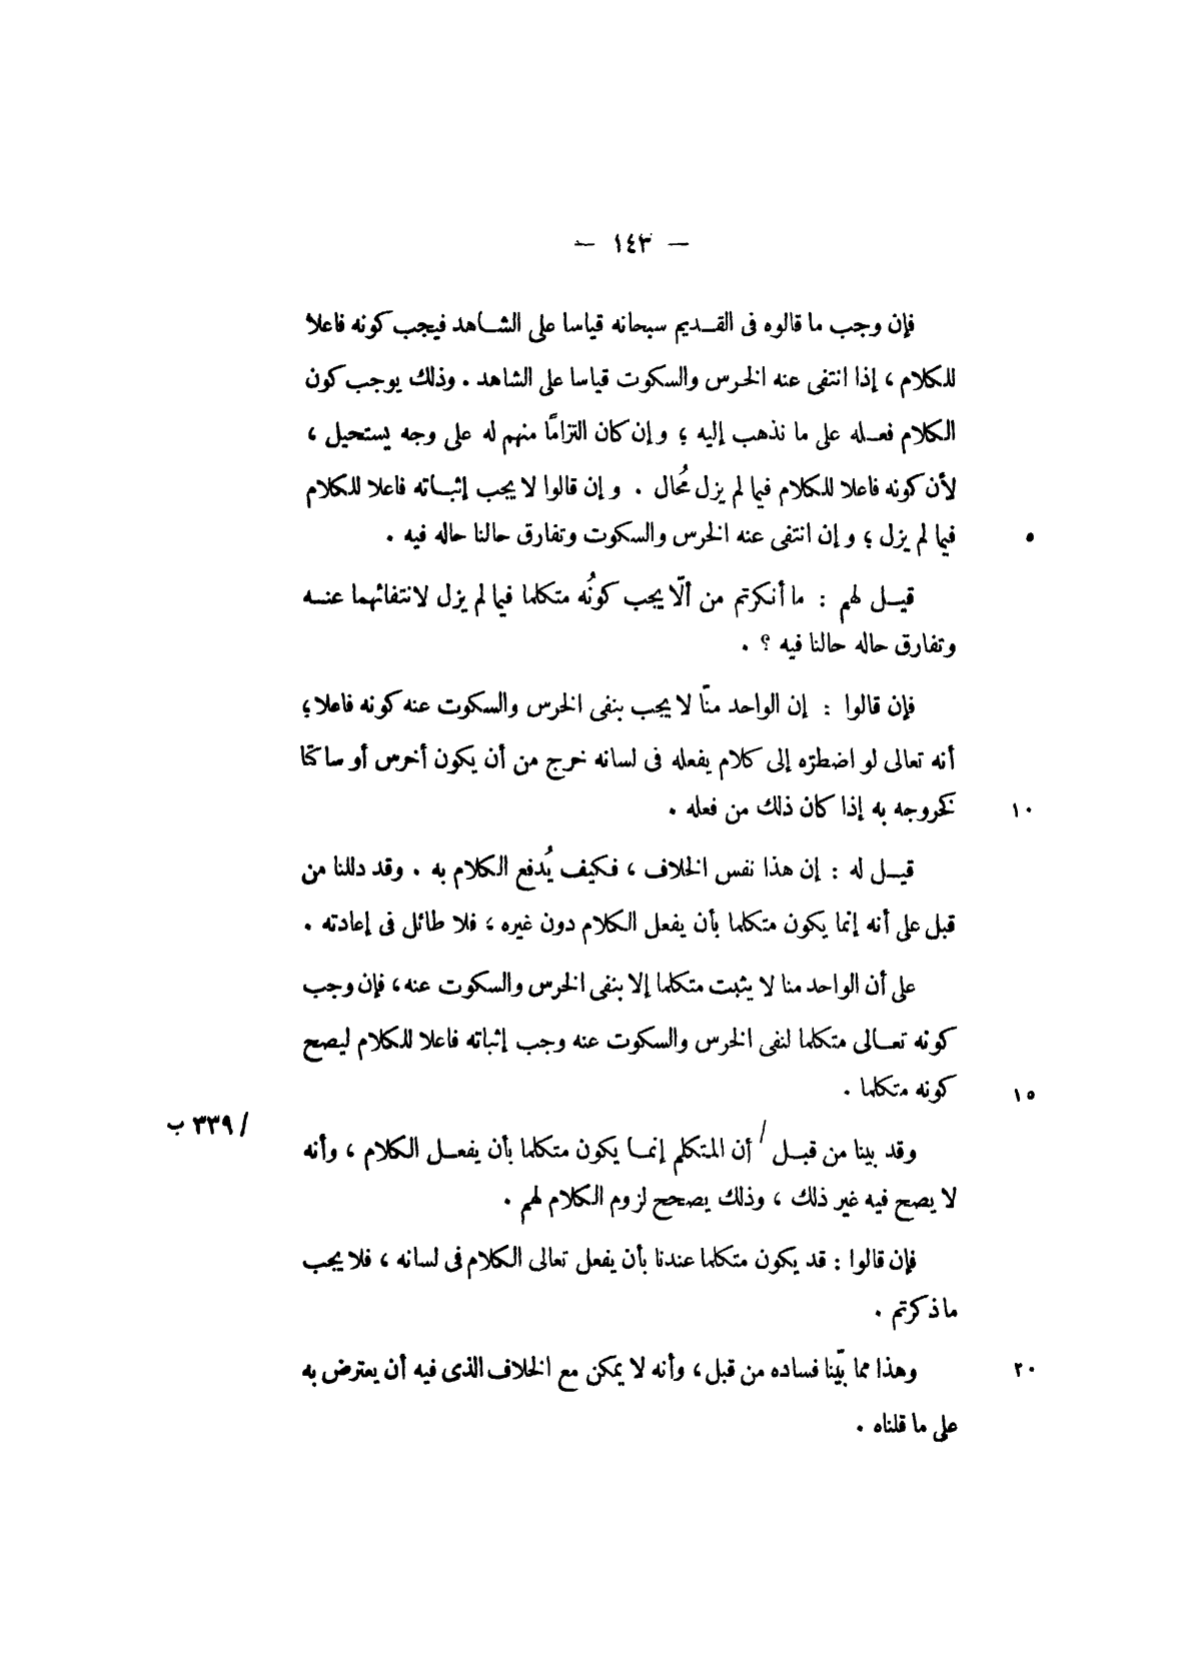 — ١٤٣ —
فإن وجب ما قالوه فى القديم سبحانه قياسا على الشاهد فيجب كونه فاعلا
للكلام ، إذا انتفى عنه الخرس والسكوت قياسا على الشاهد . وذلك يوجب كون
الكلام فعله على ما نذهب إليه ؛ وإن كان التزامًا منهم له على وجه يستحيل ،
لأن كونه فاعلا للكلام فيما لم يزل مُحال . وإن قالوا لا يجب إثباته فاعلا للكلام
فيما لم يزل ؛ وإن انتفى عنه الخرس والسكوت وتفارق حالنا حاله فيه . ٥
قيل لهم : ما أنكرتم من ألّا يجب كونُه متكلما فيما لم يزل لانتفائهما عنه
وتفارق حاله حالنا فيه ؟ .
فإن قالوا : إن الواحد منّا لا يجب بنفى الخرس والسكوت عنه كونه فاعلا ؛
أنه تعالى لو اضطرّه إلى كلام يفعله فى لسانه خرج من أن يكون أخرس أو ساكتًا
كخروجه به إذا كان ذلك من فعله . ١٠
قيل له : إن هذا نفس الخلاف ، فكيف يُدفع الكلام به . وقد دللنا من
قبل على أنه إنما يكون متكلما بأن يفعل الكلام دون غيره ، فلا طائل فى إعادته .
على أن الواحد منا لا يثبت متكلما إلا بنفى الخرس والسكوت عنه ، فإن وجب
كونه تعالى متكلما لنفى الخرس والسكوت عنه وجب إثباته فاعلا للكلام ليصح
كونه متكلما . ١٥
وقد بينا من قبل / أن المتكلم إنما يكون متكلما بأن يفعل الكلام ، وأنه / ٣٣٩ ب
لا يصح فيه غير ذلك ، وذلك يصحح لزوم الكلام لهم .
فإن قالوا : قد يكون متكلما عندنا بأن يفعل تعالى الكلام فى لسانه ، فلا يجب
ما ذكرتم .
وهذا مما بيّنا فساده من قبل ، وأنه لا يمكن مع الخلاف الذى فيه أن يعترض به ٢٠
على ما قلناه .